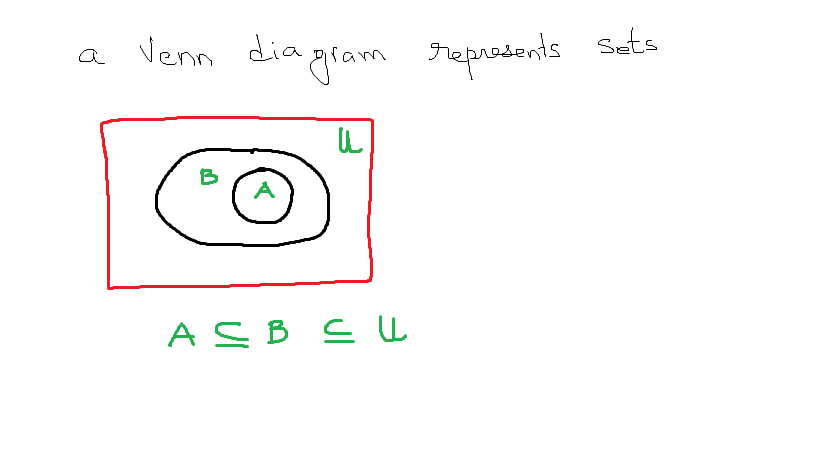 a Venn diagram represents sets
U
B
A
A ⊆ B ⊆ U